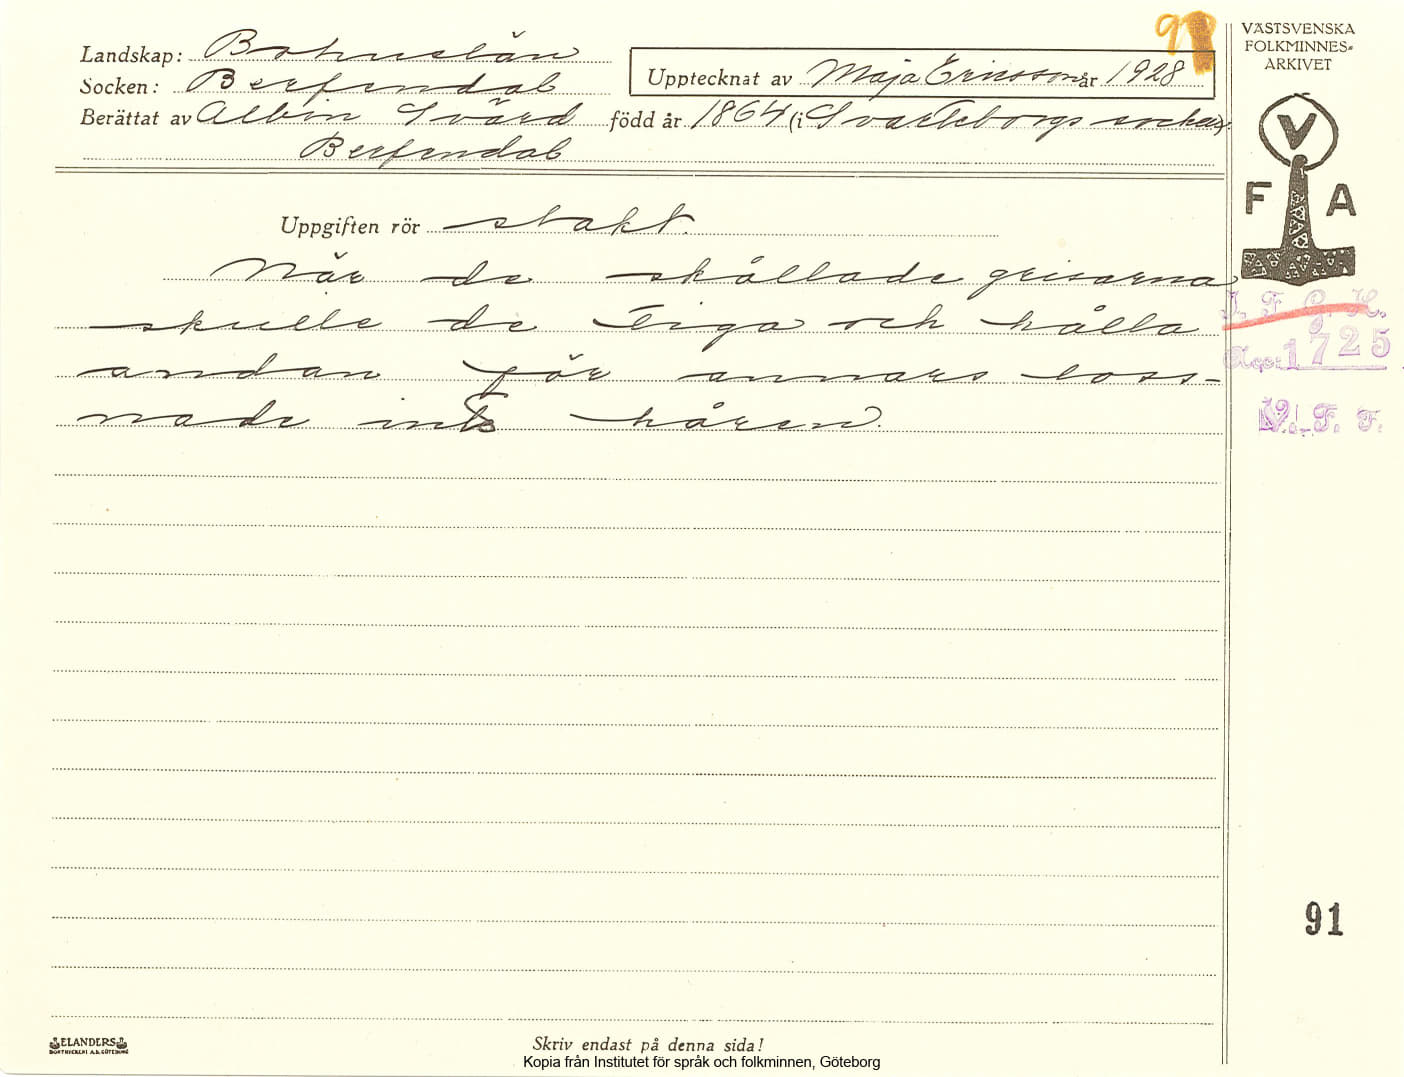 Landskap: Bohuslän
Socken: Berfendal
Upptecknat av Maja Ericsson år 1928
Berättat av Albin Svärd född år 1864 (i Svarteborgs socken).
Berfendal
Uppgiften rör slakt.
När de skållade grisarna
skulle de tiga och hålla
andan för annars loss-
nade inte håren.
VÄSTSVENSKA
FOLKMINNES-
ARKIVET
V
F A
I. F. G. H.
Acc: 1725
V. F. F.
91
ELANDERS
BOKTRYCKERI A.B. GÖTEBORG
Skriv endast på denna sida!
Kopia från Institutet för språk och folkminnen, Göteborg